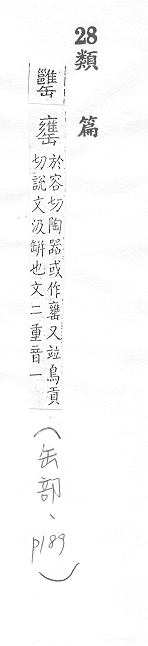 28
類篇
罋
於容切陶器或作罋又竝烏貢
切說文汲缾也文二重音一
(缶部、p189)